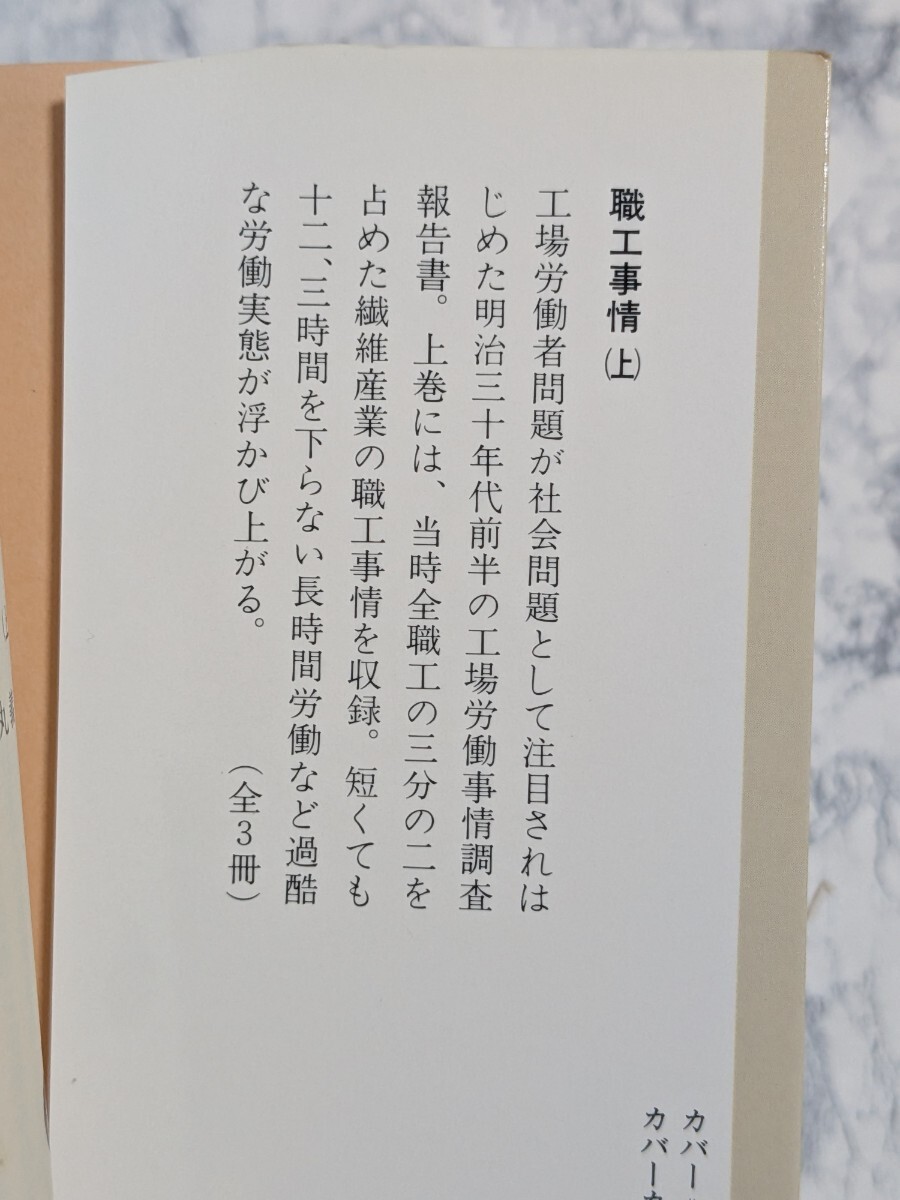 職工事情(上)
工場労働者問題が社会問題として注目されは
じめた明治三十年代前半の工場労働事情調査
報告書。上巻には、当時全職工の三分の二を
占めた繊維産業の職工事情を収録。短くても
十二、三時間を下らない長時間労働など過酷
な労働実態が浮かび上がる。（全3冊）
カバー
カバーカ